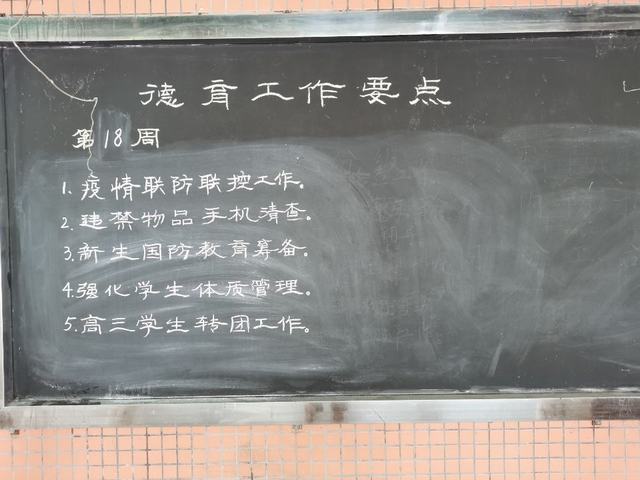 德育工作要点
第18周
1.疫情联防联控工作。
2.违禁物品手机清查。
3.新生国防教育筹备。
4.强化学生体质管理。
5.高三学生转团工作。